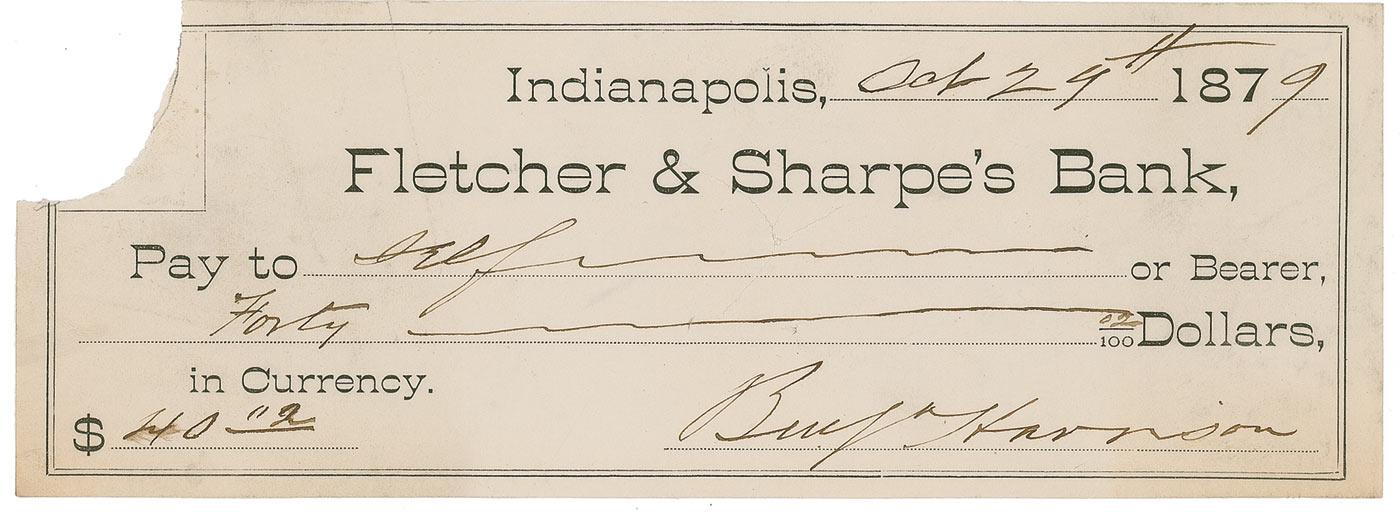 Indianapolis, Oct 29th 1879
Fletcher & Sharpe's Bank,
Pay to Self or Bearer,
Forty 00/100 Dollars,
in Currency.
$ 40 00
Benjn Harrison